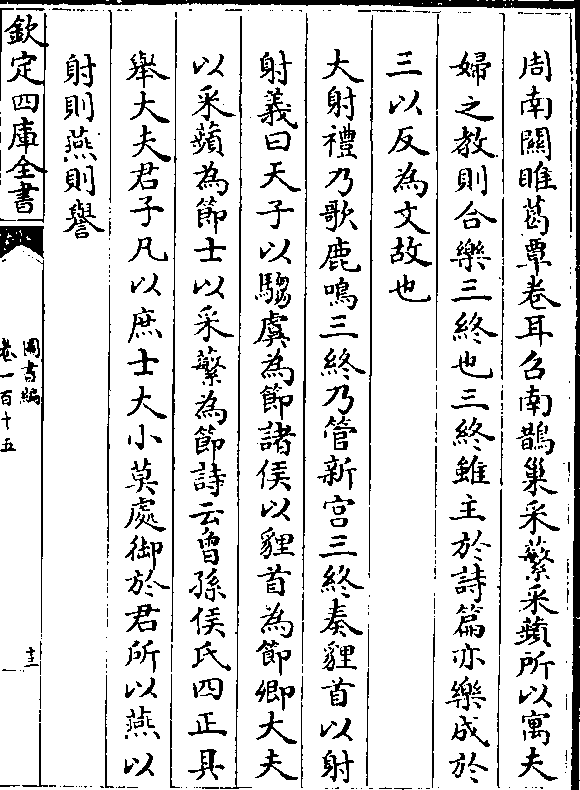 周南關雎葛覃卷耳召南鵲巢采蘩采蘋所以寓夫
婦之教則合樂三終也三終雖主於詩篇亦樂成於
三以反為文故也
大射禮乃歌鹿鳴三終乃管新宫三終奏貍首以射
射義曰天子以騶虞為節諸侯以貍首為節卿大夫
以采蘋為節士以采蘩為節詩云曾孫侯氏四正具
舉大夫君子凡以庶士大小莫處御於君所以燕以
射則燕則譽
欽定四庫全書
圖書編
卷一百十五
十三